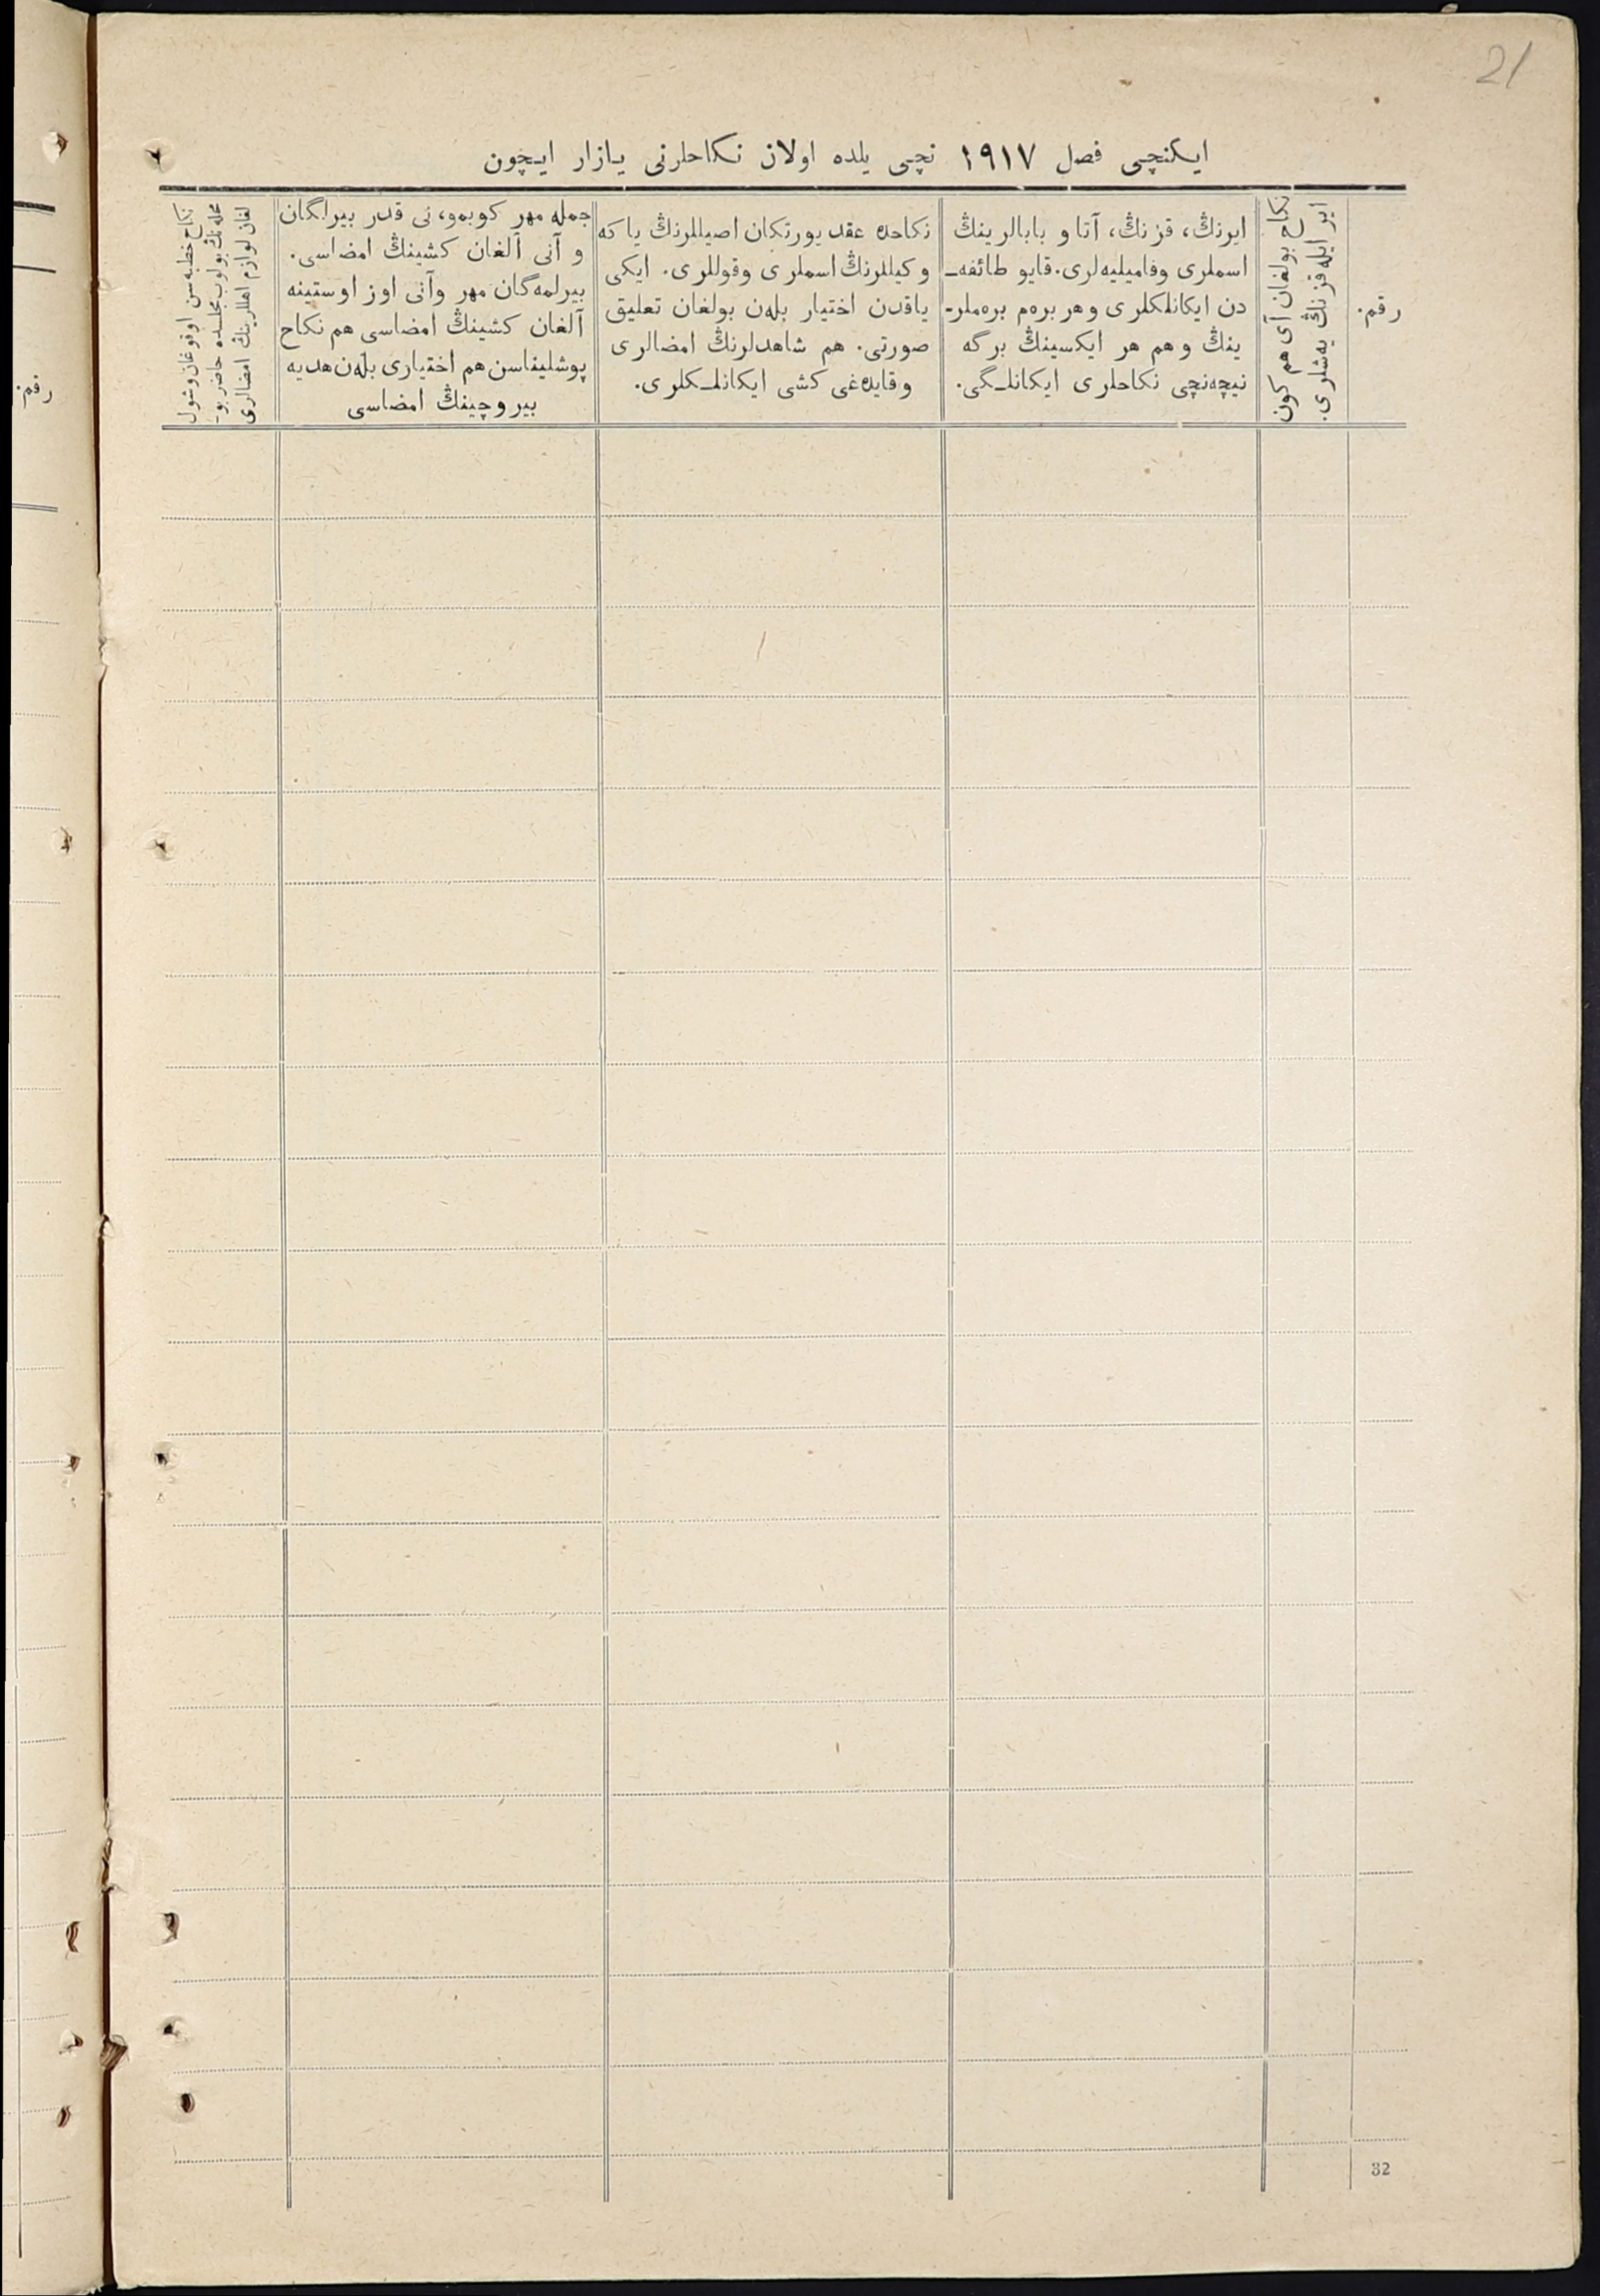 21
ایکنچی فصل ١٩١٧ نچی یلده اولان نکاحلرنی یازار ایچون
رقم.
نکاح بولغان آی هم کون
ایر ایله قزنڭ یه‌شلری.
ایرنڭ، قزنڭ، آتا و بابالرینڭ
اسملری وفامیلیه‌لری. قایو طائفه‌ـ
دن ایکانلکلری وهر بره‌م بره‌ملرـ
ینڭ وهم هر ایکسینڭ برگه
نیچه‌نچی نکاحلری ایکانلـگی.
نکاحده عقد یورتکان اصیللرنڭ یاکه
وکیللرنڭ اسملری وقوللری. ایکی
یاقدن اختیار بله‌ن بولغان تعلیق
صورتی. هم شاهدلرنڭ امضالری
وقایده‌غی کشی ایکانلـکلری.
جمله مهر کوبمو، نی قدر بیرلگان
و آنی آلغان کشینڭ امضاسی.
بیرلمه‌گان مهر وآنی اوز اوستینه
آلغان کشینڭ امضاسی هم نکاح
پوشلیناسن هم اختیاری بله‌ن هدیه
بیروچینڭ امضاسی
نکاح خطبه‌سن اوقوغان وشول
محله‌نڭ بولوب مجلسده حاضر بوـ
لغان لوازم اهللرینڭ امضالری
رقم.
32